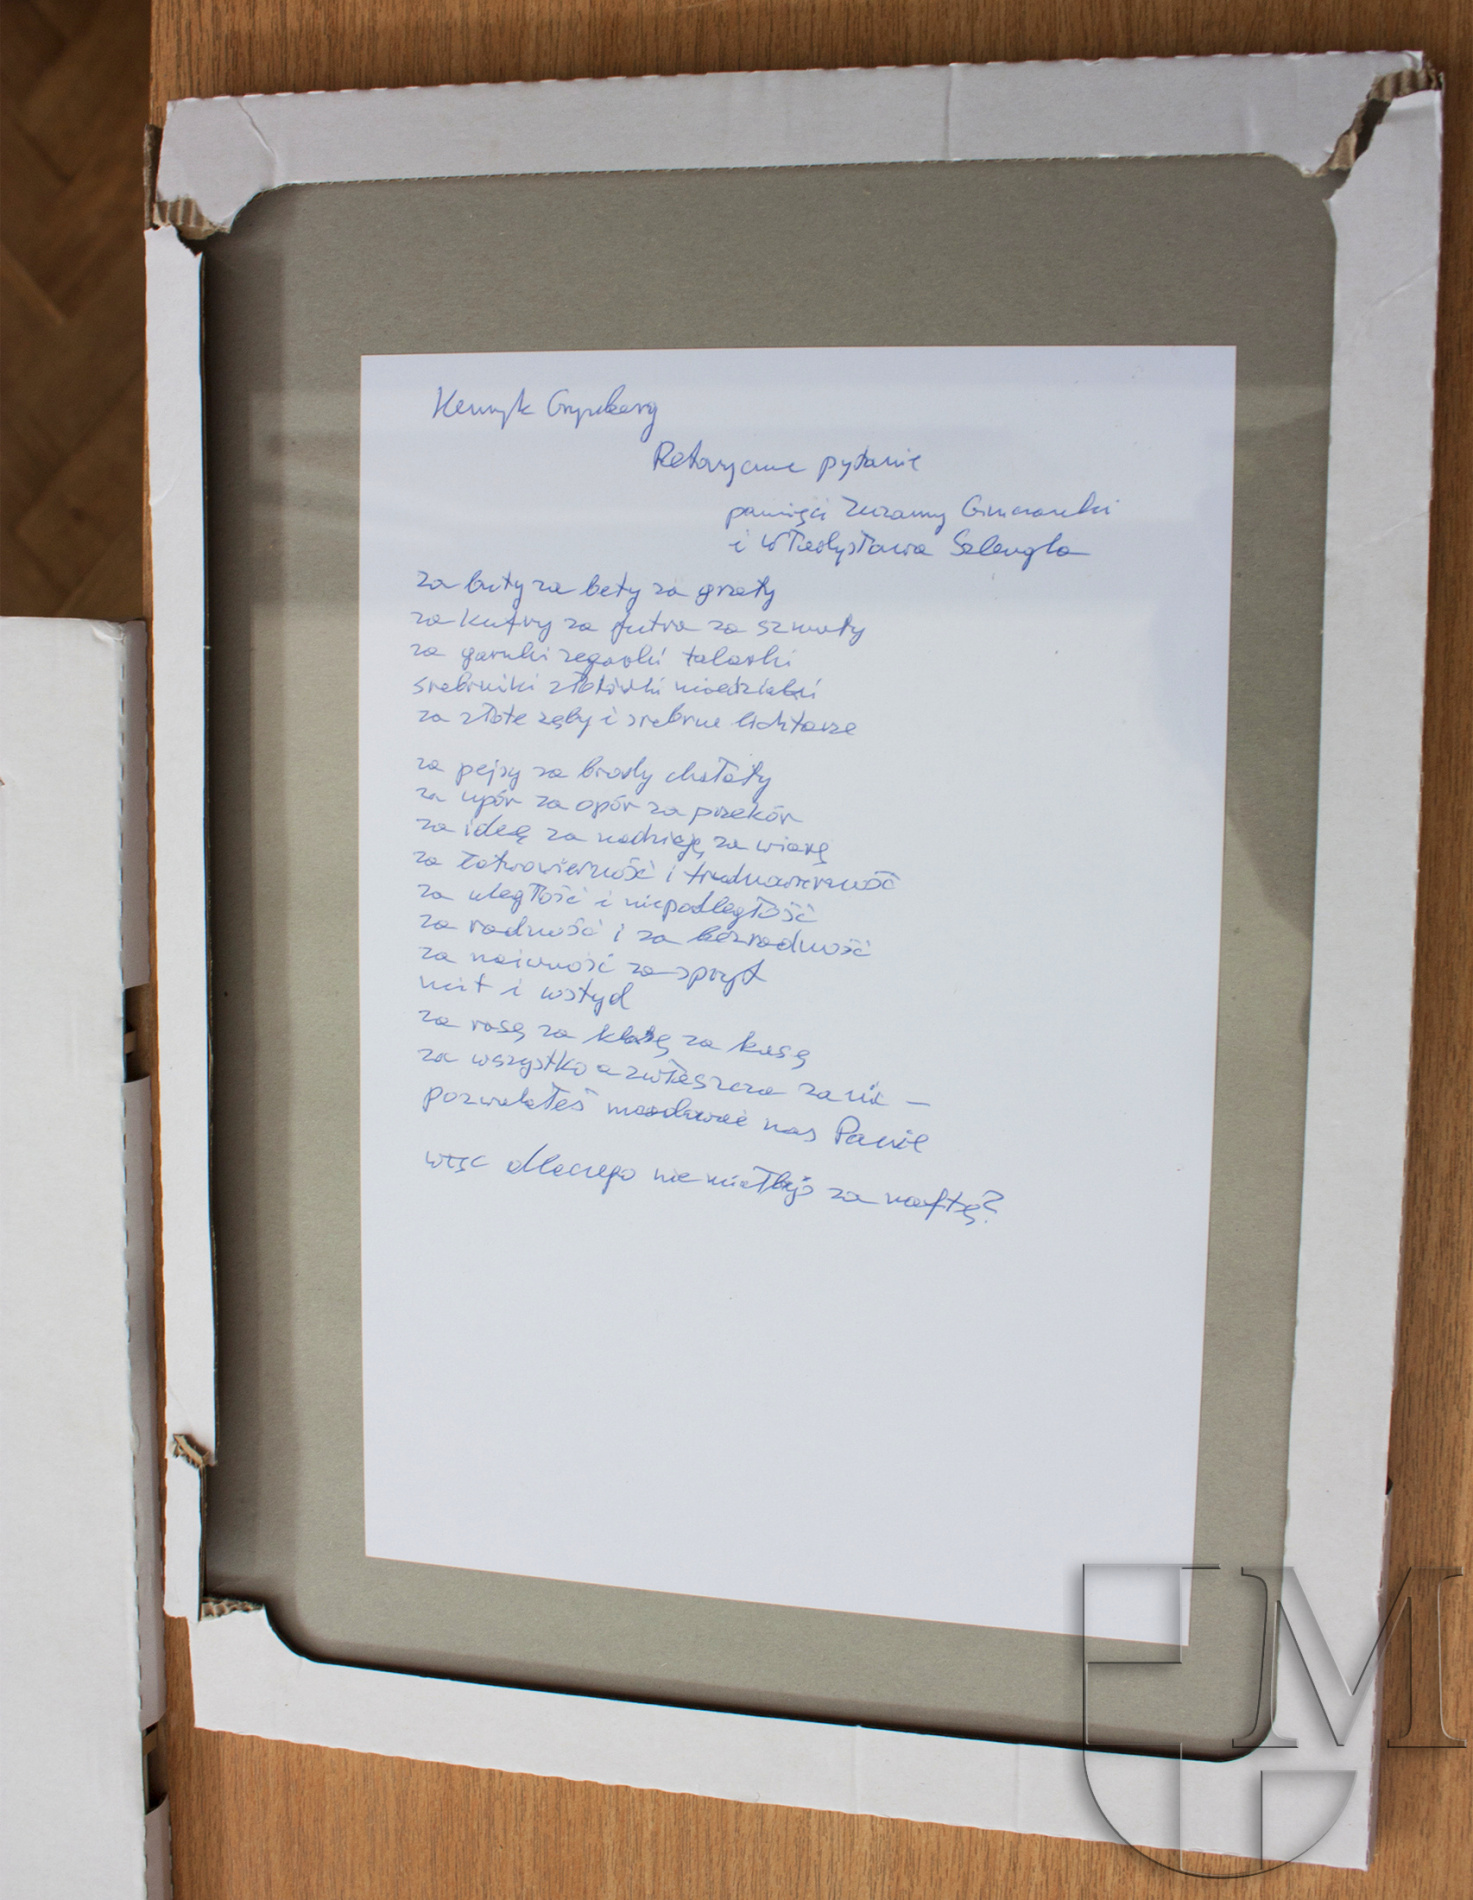 Henryk Grynberg
Retoryczne pytanie
pamięci Zuzanny Ginczanki
i Władysława Szlengla
za buty za bety za graty
za kufry za futra za szmaty
za garnki zegarki talarki
srebrniki złotówki miedziaki
za złote zęby i srebrne lichtarze
za pejsy za brody chałaty
za upór za opór za przekór
za ideę za nadzieję za wiarę
za łatwowierność i trudnowierność
za uległość i niepodległość
za radność i za bezradność
za naiwność za spryt
mit i wstyd
za rasę za klasę za kasę
za wszystko a zwłaszcza za nic —
pozwalałeś mordować nas Panie
więc dlaczego nie miałbyś za naftę?
M